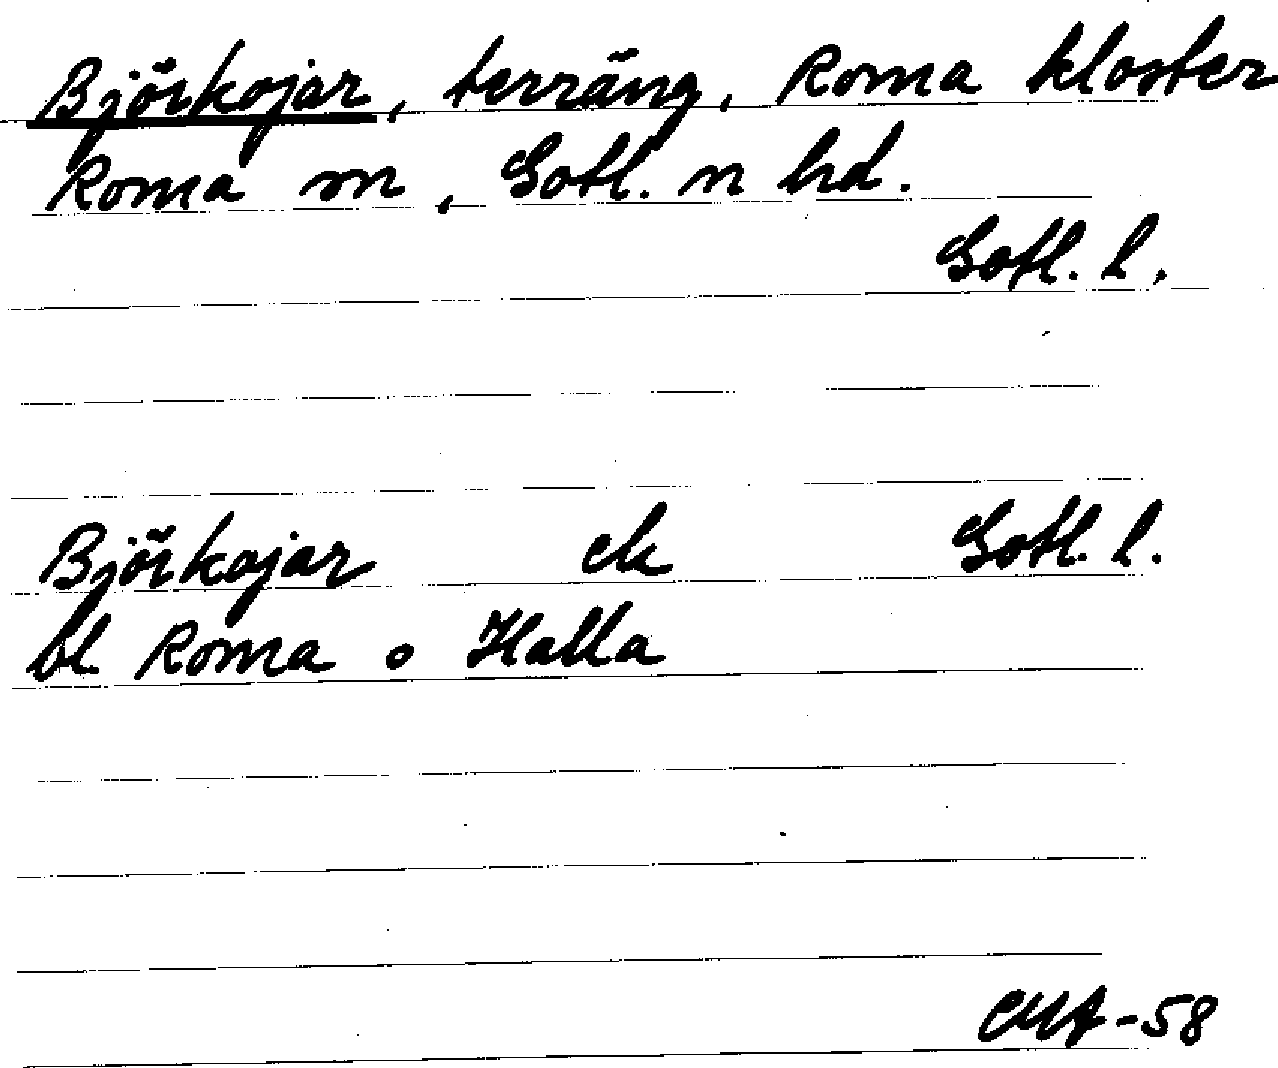 Björkojar, terräng, Roma kloster
Roma sn, Gotl. n hd.
Gotl. l.
Björkojar ek Gotl. l.
bl Roma o Halla
CMA-58